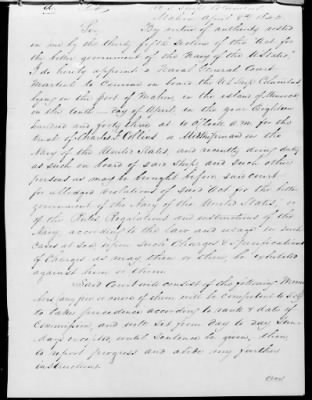 Mahon April 8th
Sir, By virtue of authority vested
in me by the thirty fifth section of the Act for
the better government of the Navy of the U States,
I do hereby appoint a Naval General Court
Martial to convene on board the U S Ship Columbus
lying in the port of Mahon, in the island of Minorca
on the tenth day of April, in the year Eighteen
hundred and forty three at 10 O'Clock a.m. for the
trial of Charles J. Collins a Midshipman in the
Navy of the United States, and recently doing duty
as such on board of said Ship, and such other
persons as may be brought before said court
for alledged violations of said Act for the better
government of the Navy of the United States, or
of the Rules Regulations and instructions of the
Navy, according to the law and usage in such
cases at sea upon such Charges & Specifications
of Charges as may then or then, be exhibited
against him or them.
Said Court will consist of the following Mem
bers any five or more of them will be competent to sit
to take precedence according to rank & date of
Commission, and will set from day to day Sun
days excepted, until sentence be given, then
to report progress and abide my further
instructions.